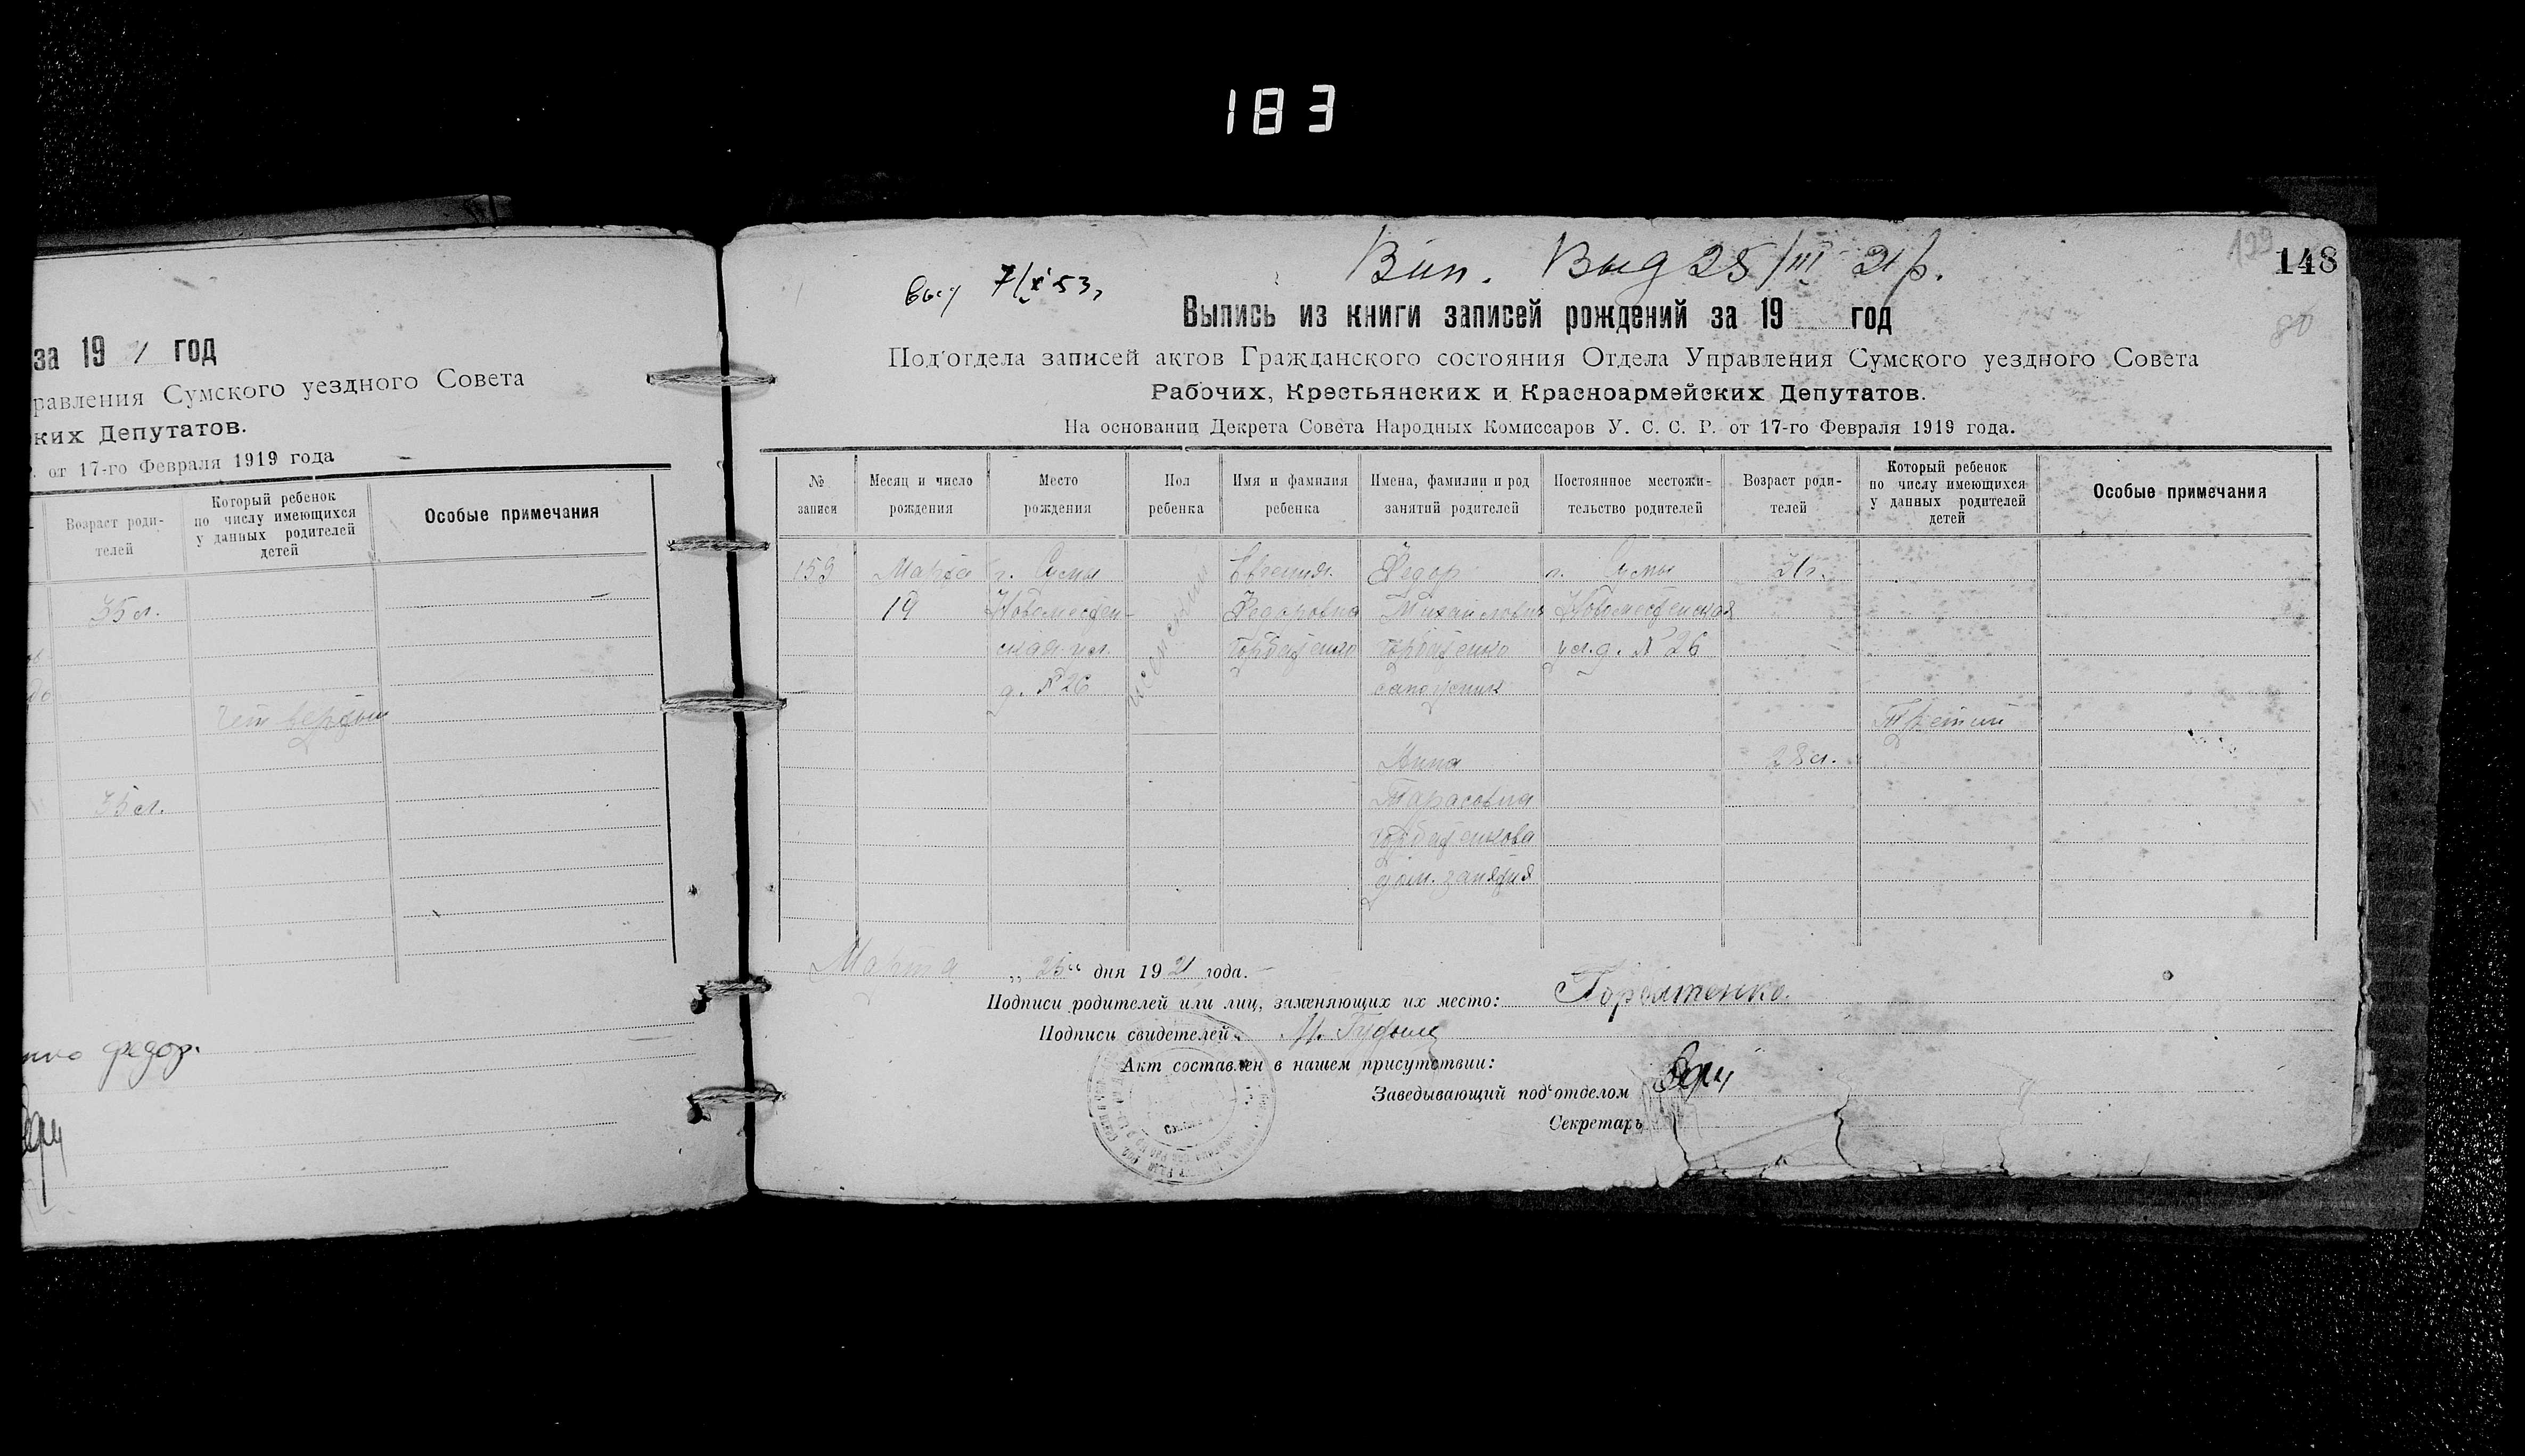 183
за 19 год
равления Сумского уездного Совета
ких Депутатов.
от 17-го Февраля 1919 года
Возраст роди-
телей
Который ребенок
по числу имеющихся
у данных родителей
детей
Особые примечания
35 л.
четвертый
35 л.
федор.
129
148
80
7/X 53
Вип. Выд 25/III 21 р.
Выпись из книги записей рождений за 19 год
Под'отдела записей актов Гражданского состояния Отдела Управления Сумского уездного Совета
Рабочих, Крестьянских и Красноармейских Депутатов.
На основании Декрета Совета Народных Комиссаров У. С. С. Р. от 17-го Февраля 1919 года.
№
записи
Месяц и число
рождения
Место
рождения
Пол
ребенка
Имя и фамилия
ребенка
Имена, фамилии и род
занятий родителей
Постоянное местожи-
тельство родителей
Возраст роди-
телей
Который ребенок
по числу имеющихся
у данных родителей
детей
Особые примечания
159
Марта
19
г. Сумы
Новоместен-
ская ул.
д. № 26
женский
Евгения
Федоровна
Горбатенко
Федор
Михайлович
Горбатенко
сапожник
Анна
Тарасовна
Горбатенкова
дом. занятия
г. Сумы
Новоместенская
ул. д. № 26
31 г.
28 л.
Третий
Марта „25" дня 1921 года.
Подписи родителей или лиц, заменяющих их место: Горбатенко.
Подписи свидетелей
Акт составлен в нашем присутствии:
Заведывающий под'отделом
Секретарь